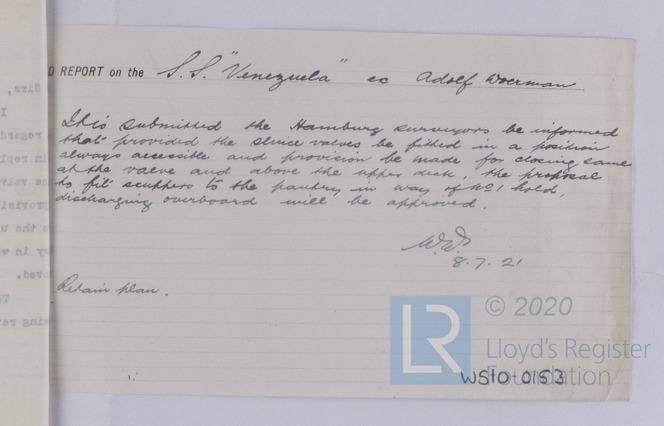 D REPORT on the S.S. "Venezuela" ex Adolf Woerman
It is submitted the Hamburg surveyors be informed
that provided the sluice valves be fitted in a position
always accessible and provision be made for closing same
at the valve and above the upper deck, the proposal
to fit scuppers to the pantry in way of No 1 hold,
discharging overboard will be approved.
8.7.21
Retain plan.
© 2020
LR
Lloyd's Register
Foundation
WS10-0153
Sirs,
I
regard
in repl
valv
provisi
the u
by in w
oved.
Th